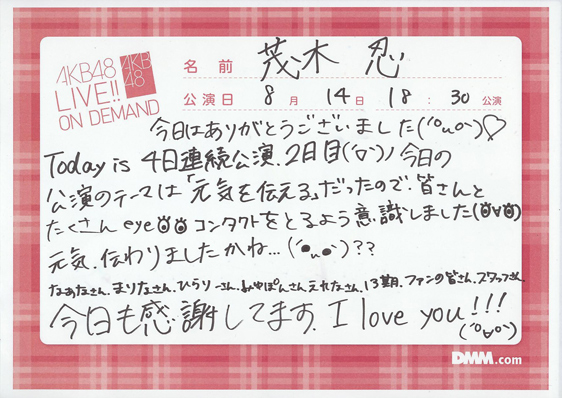 AKB48
LIVE!!
ON DEMAND
AKB
48
名前 茂木 忍
公演日 8月 14日 18:30 公演
今日はありがとうございました(´ºuº`)♡
Today is 4日連続公演、2日目(´▽`)ノ今日の
公演のテーマは「元気を伝える」だったので、皆さんと
たくさんeyeコンタクトをとるよう意識しました
元気、伝わりましたかね…(´•ω•`)??
なぁなさん、まりなさん、ひらりーさん、みゆぽんさん、えれなさん、13期、ファンの皆さん、スタッフさん、
今日も感謝してます、I love you!!!
(´ºvº`)
DMM.com